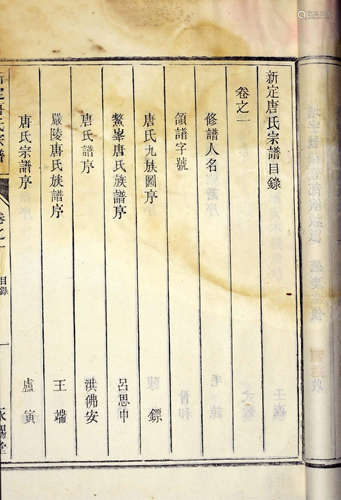 新定唐氏宗譜目錄
卷之一
修譜人名
領譜字號
唐氏九族圖序 陳鏢
鰲峯唐氏族譜序 呂思中
唐氏譜序 洪佛安
嚴陵唐氏族譜序 王端
唐氏宗譜序 盧寅
新定唐氏宗譜
卷之一
目錄
一